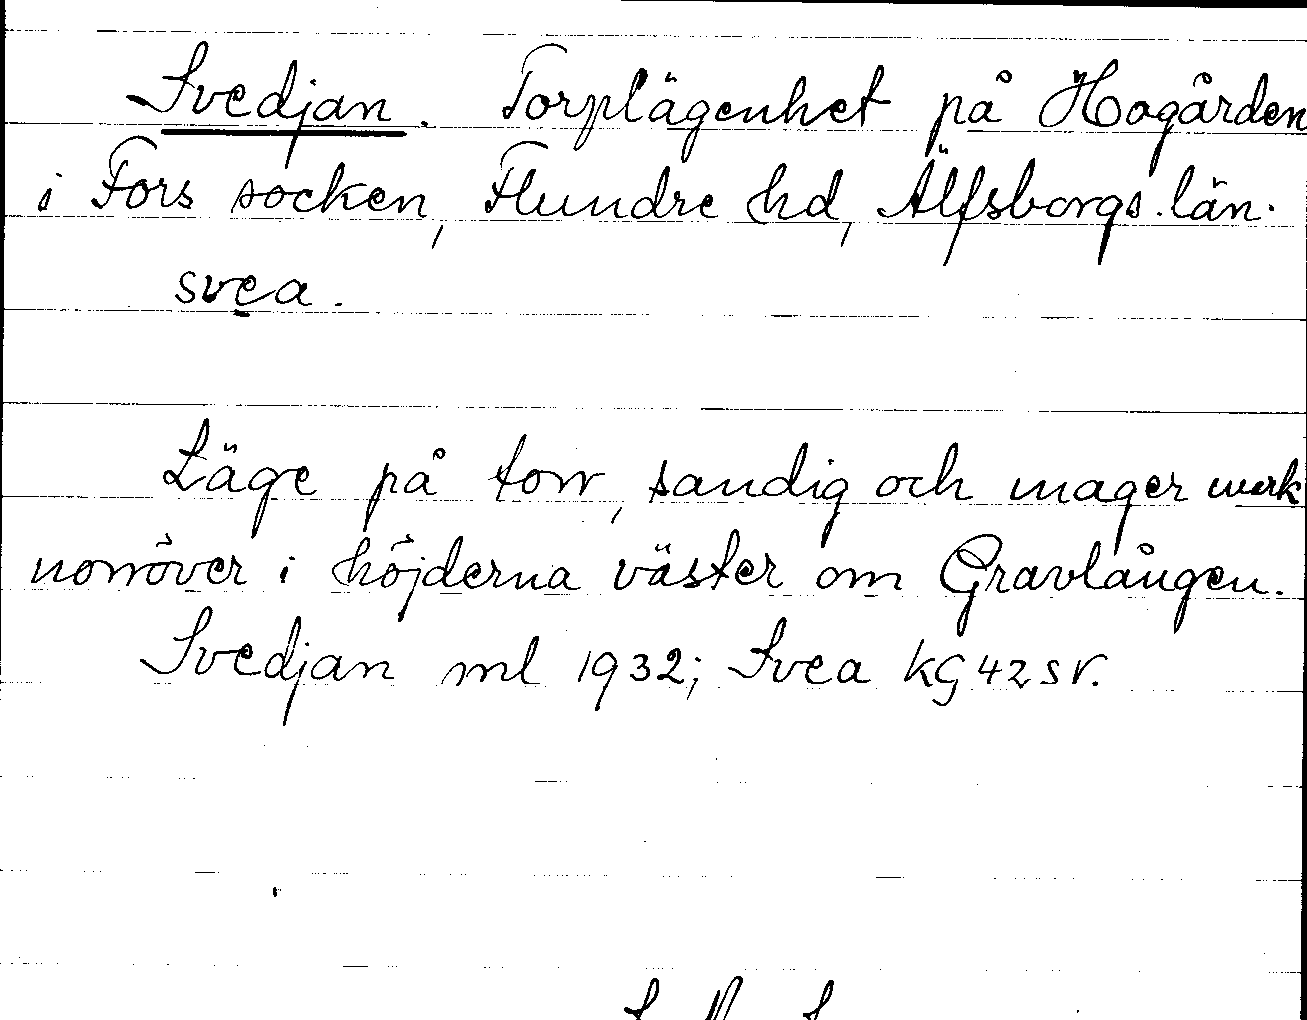 Svedjan. Torplägenhet på Hogården
i Fors socken, Flundre hd, Älfsborgs län.
svea.
Läge på torr, sandig och mager mark
norröver i höjderna väster om Gravlången.
Svedjan ml 1932; Svea KG 42 SV.